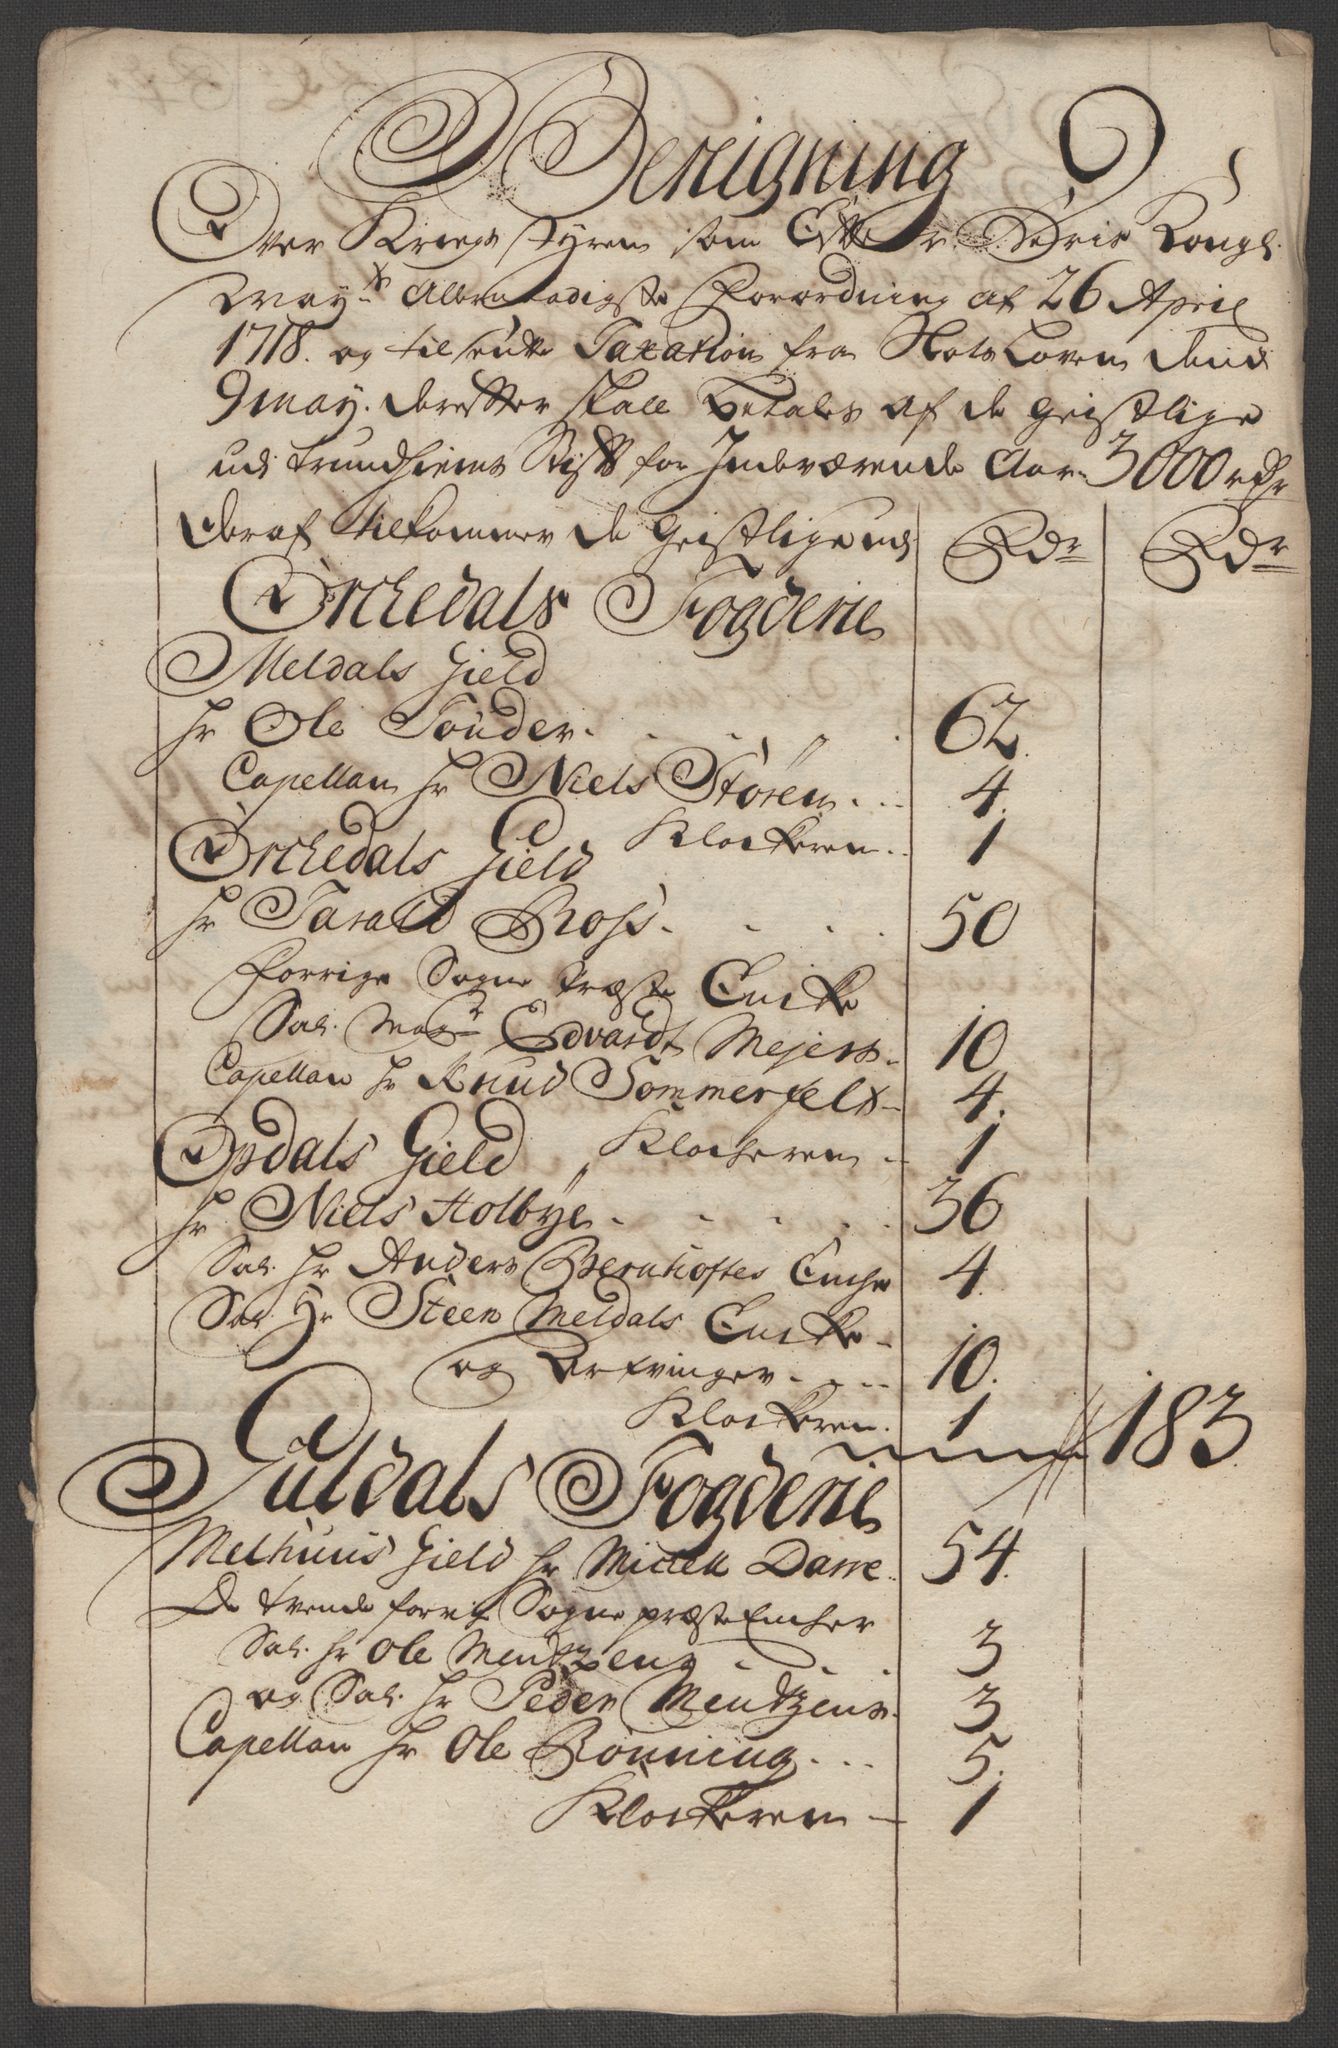 Berigning
Over Kriegs Styren som Efter Deris Kongl.
May.ts Allernaadigste Forordning af 26 April
1718. og tilsendte Taxation fra Slots Loven dend
9 may. derefter skall betales af de geistlige
udi Trundhiems Stift for Indeværende Aar 3000 rdr
deraf tilkommer de geistlige udi Rdr Rdr
Orchedals Fogderie
Meldals Gield
hr Ole Tonder . . . . 62.
Capellan hr Niels Stören . . . 4.
Klockeren . . 1
Orchedals Gield
hr Tarald Ross . . . . 50
Forrige Sogne Præste Encke
Sal. Mag.r Edvardt Mejers - 10
Capellan hr Knud Sommerfelt - 4.
Klockeren - 1
Opdals Gield
hr Niels Holbye . . . . 36
Sal. hr Anders Bernhoftes Encke 4.
Sal. Hr Steen Meldals Encke -
og Arfvinger . . . . 10.
Klockeren . 1 183
Guldals Fogderie
Melhuus Gield hr Mickell Darre . 54.
De tvende forrige Sognepræste Encker
Sal. hr Ole Mentzens . . . 3
og Sal. hr Peder Mentzens . 3
Capellan hr Ole Rönning . . . 5.
Klockeren - 1